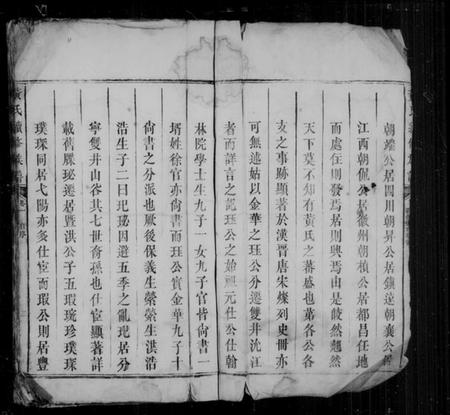 朝端公居四川朝昇公居鎮遠朝襄公居
江西朝侃公居徽州朝楨公居都昌任地
而處任則發焉居則興焉由是皷然翹然
天下莫不知有黃氏之蕃盛也第各公各
支之事跡顯著於漢晉唐宋燦列史冊亦
可無述姑以金華之珏公分遷雙井沈江
者而詳言之珏公之始祖元仕公仕翰
林院學士生九子一女九子官皆尚書一
壻姓徐官亦尚書而珏公實金華九子十
尚書之分派也厥後保義生縈縈生洪浩
浩生子二曰玘玭因避五季之亂玘居分
寧雙井山谷其七世裔孫也仕宦顯著詳
載舊牒玭遷居暨洪公子五瑕琬珍璞琛
璞琛同居弋陽亦多仕宦而瑕公則居豐
黃氏續修族譜